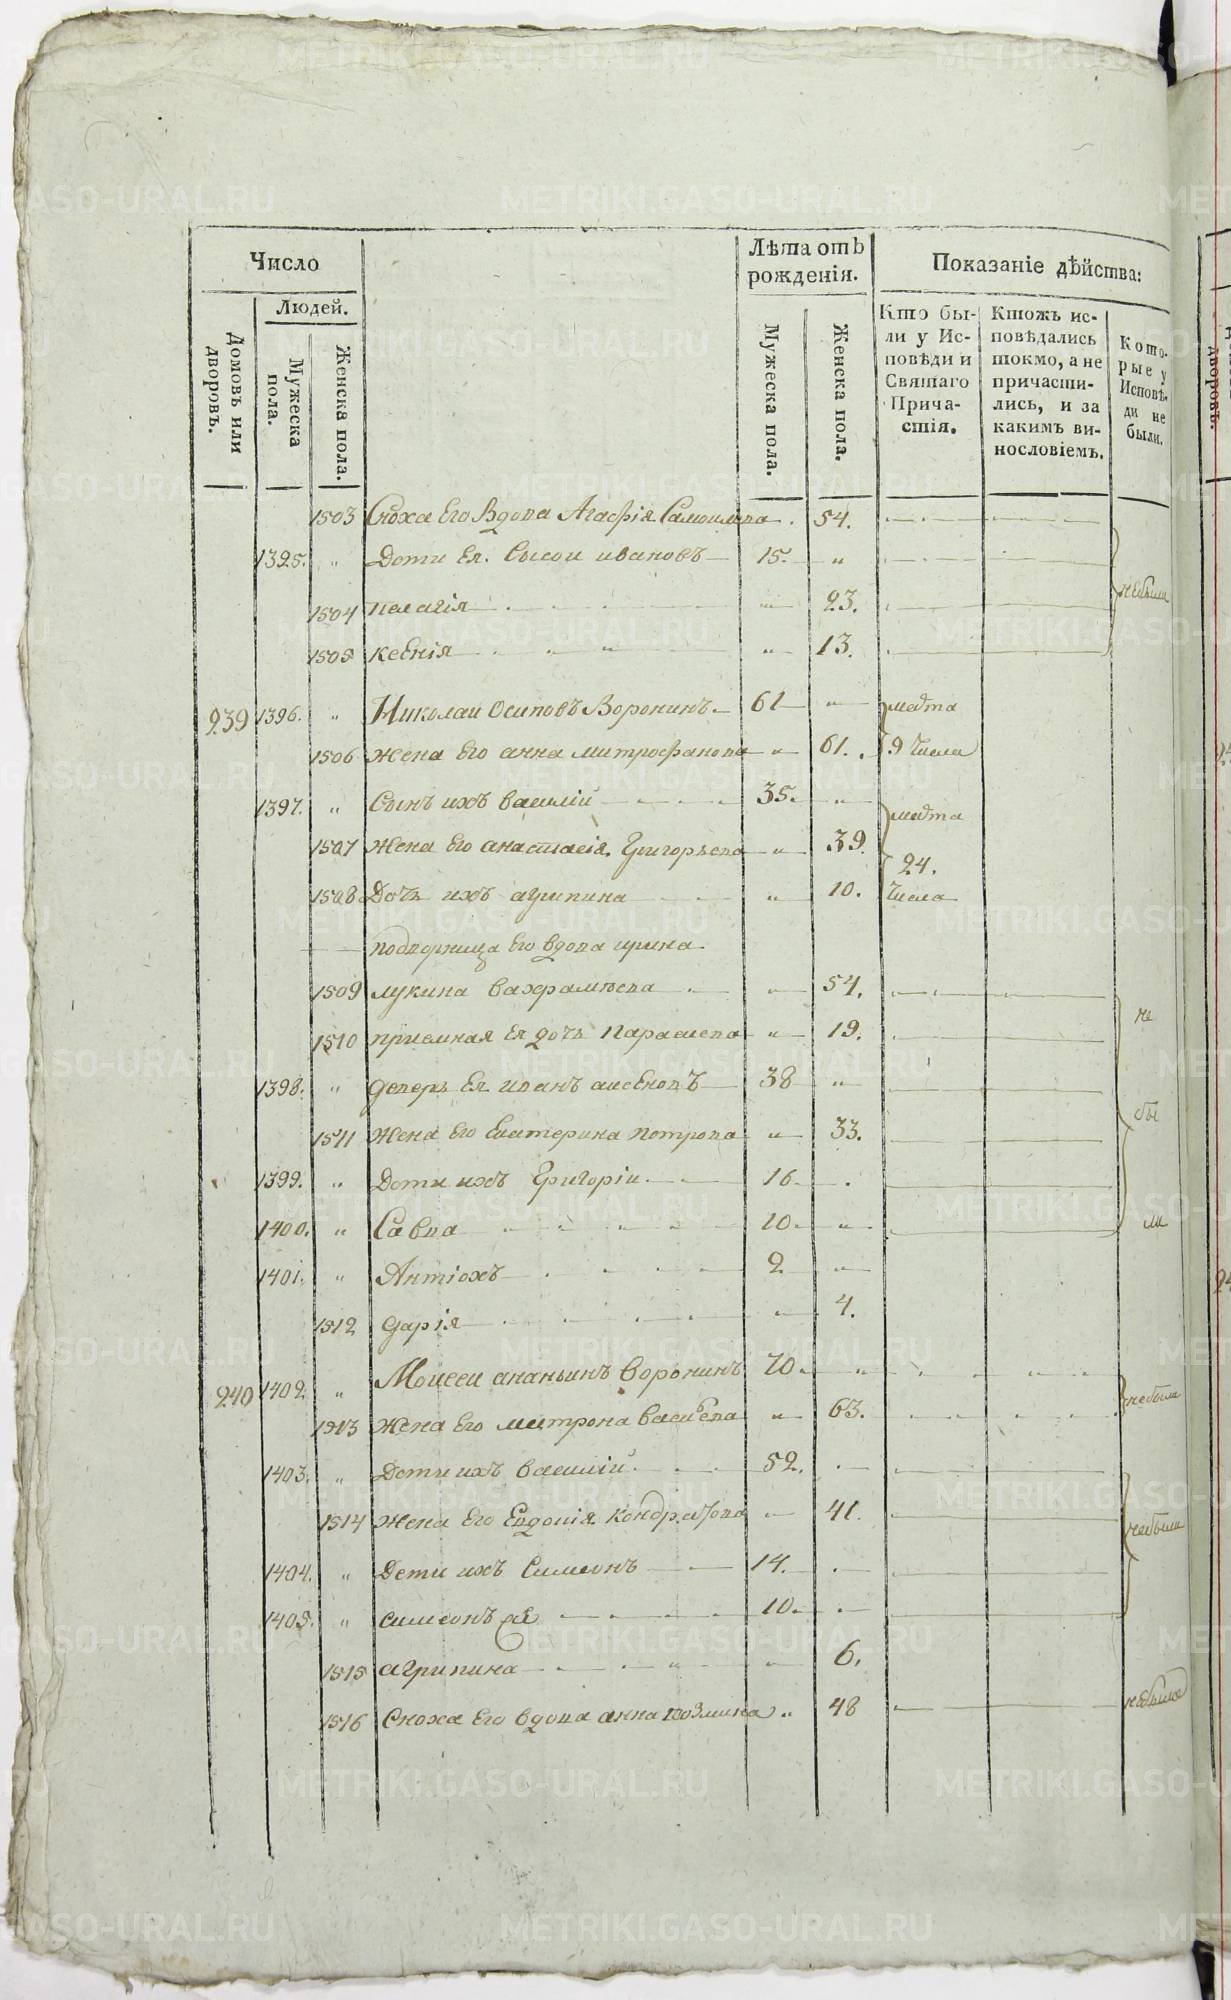 Число
Людей.
Домовъ или дворовъ.
Мужеска пола.
Женска пола.
Лѣта отъ рожденія.
Мужеска пола.
Женска пола.
Показаніе дѣйства:
Кто бы-
ли у Ис-
повѣди и
Святаго
Прича-
стія.
Ктожъ ис-
повѣдались
токмо, а не
причасти-
лись, и за
какимъ ви-
нословіемъ.
Кото-
рые у
Исповѣ-
ди не
были.
1503 Сноха Его Вдова Агафія Самоилова 54.
1395. " Дети Ея. Сысои ивановъ 15. "
небыли
1504 пелагія " 23.
1505 ксенія " 13.
239 1396. " Николаи Осиповъ Воронинъ 61 "
марта
1506 жена Его анна митрофанова " 61.
9 Числа
1397. " Сынъ ихъ василій 35. "
марта
1507 жена Его анастасія Григорьева " 39.
24.
1508 Дочь ихъ агрипина " 10.
Числа
подворница Его вдова ирина
1509 лукина вахрамѣева " 54.
не
1510 приемная Ея дочь Параскева " 19.
1398. " деверь Ея иванъ аксеновъ 38 "
бы
1511 жена Его Екатерина петрова " 33.
1399. " Дети ихъ Григоріи 16
1400. " Савва 10. "
ли
1401. " Антіохъ 2 "
1512 дарія " 4.
240 1402. " Моисеи ананьинъ воронинъ 70. "
небыли
1513 жена Его матрона васильева " 63.
1403. " Дети ихъ василій 52.
1514 жена Его Евдокія кондратова " 41.
небыли
1404. " Дети ихъ Симеонъ 14.
1405. " симеонъ же 10.
1515 агрипина " 6.
1516 Сноха Его вдова анна козмина " 48
небыла
METRIKI.GASO-URAL.RU